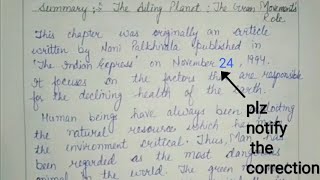 Summary :- The Ailing Planet : The Green Movement's
Role
This chapter was originally an article
written by Nani Palkhivala published in
'The Indian Express' on November 24, 1994.
It focuses on the factors that are responsible
for the declining health of the Earth.
Human beings have always been
the natural resources which has
the environment critical. Thus, Man has
been regarded as the most dangerous
animal in the world. The green
plz
notify
the
correction